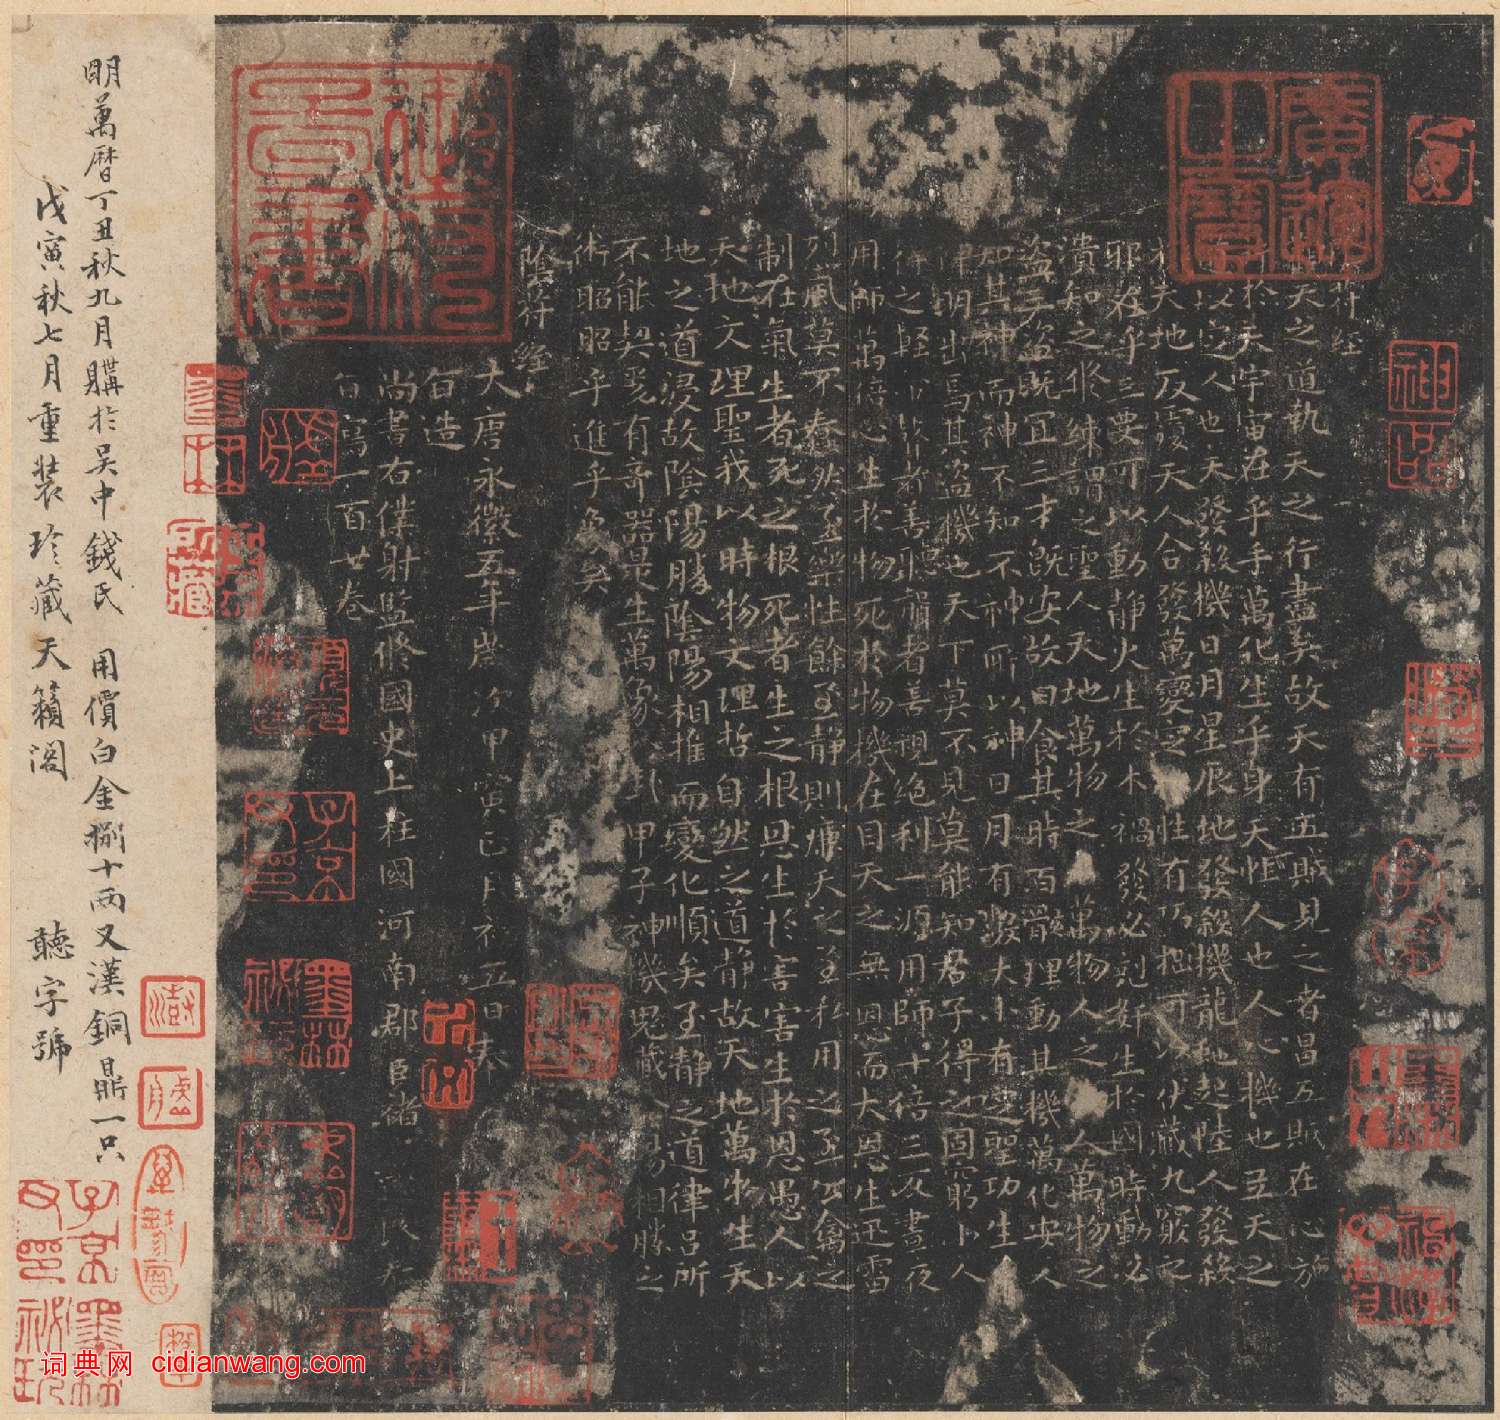 符經
天之道執天之行盡矣故天有五賊見之者昌五賊在心施
於天宇宙在乎手萬化生乎身天性人也人心機也立天之
以定人也天發殺機日月星辰地發殺機龍虵起陸人發殺
機天地反覆天人合發萬變定 性有巧拙可以伏藏九竅之
邪在乎三要可以動靜火生於木禍發必剋姧生於國時動必
潰知之修練謂之聖人天地萬物之 萬物人之 人萬物之
盜三盜既冝三才既安故曰食其時百骸理動其機萬化安人
知其神而神不知不神所以神日月有數大小有定聖功生
神明出焉其盜機也天下莫不見莫能知君子得之固窮小人
得之輕 瞽者善聽聾者善視絕利一源用師十倍三反晝夜
用師萬倍心生於物死於物機在目天之無恩而大恩生迅雷
烈風莫不蠢然至樂性餘至靜則廉天之至私用之至公禽之
制在氣生者死之根死者生之根恩生於害害生於恩愚人以
天地文理聖我以時物文理哲自然之道靜故天地萬物生天
地之道浸故陰陽勝陰陽相推而變化順矣至靜之道律呂所
不能契爰有奇器是生萬象 卦甲子神機鬼藏 陽相勝之
術昭昭乎進乎象矣
陰符經
大唐永徽五年歲次甲寅正月初五日奉
旨造
尚書右僕射監修國史上柱國河南郡臣褚 良奉
旨寫一百廿卷
明萬曆丁丑秋九月購於吳中錢氏 用價白金捌十兩又漢銅鼎一只
戊寅秋七月重裝珍藏天籟閣 聽字號
子京父印
墨林秘玩
词典网 cidianwang.com